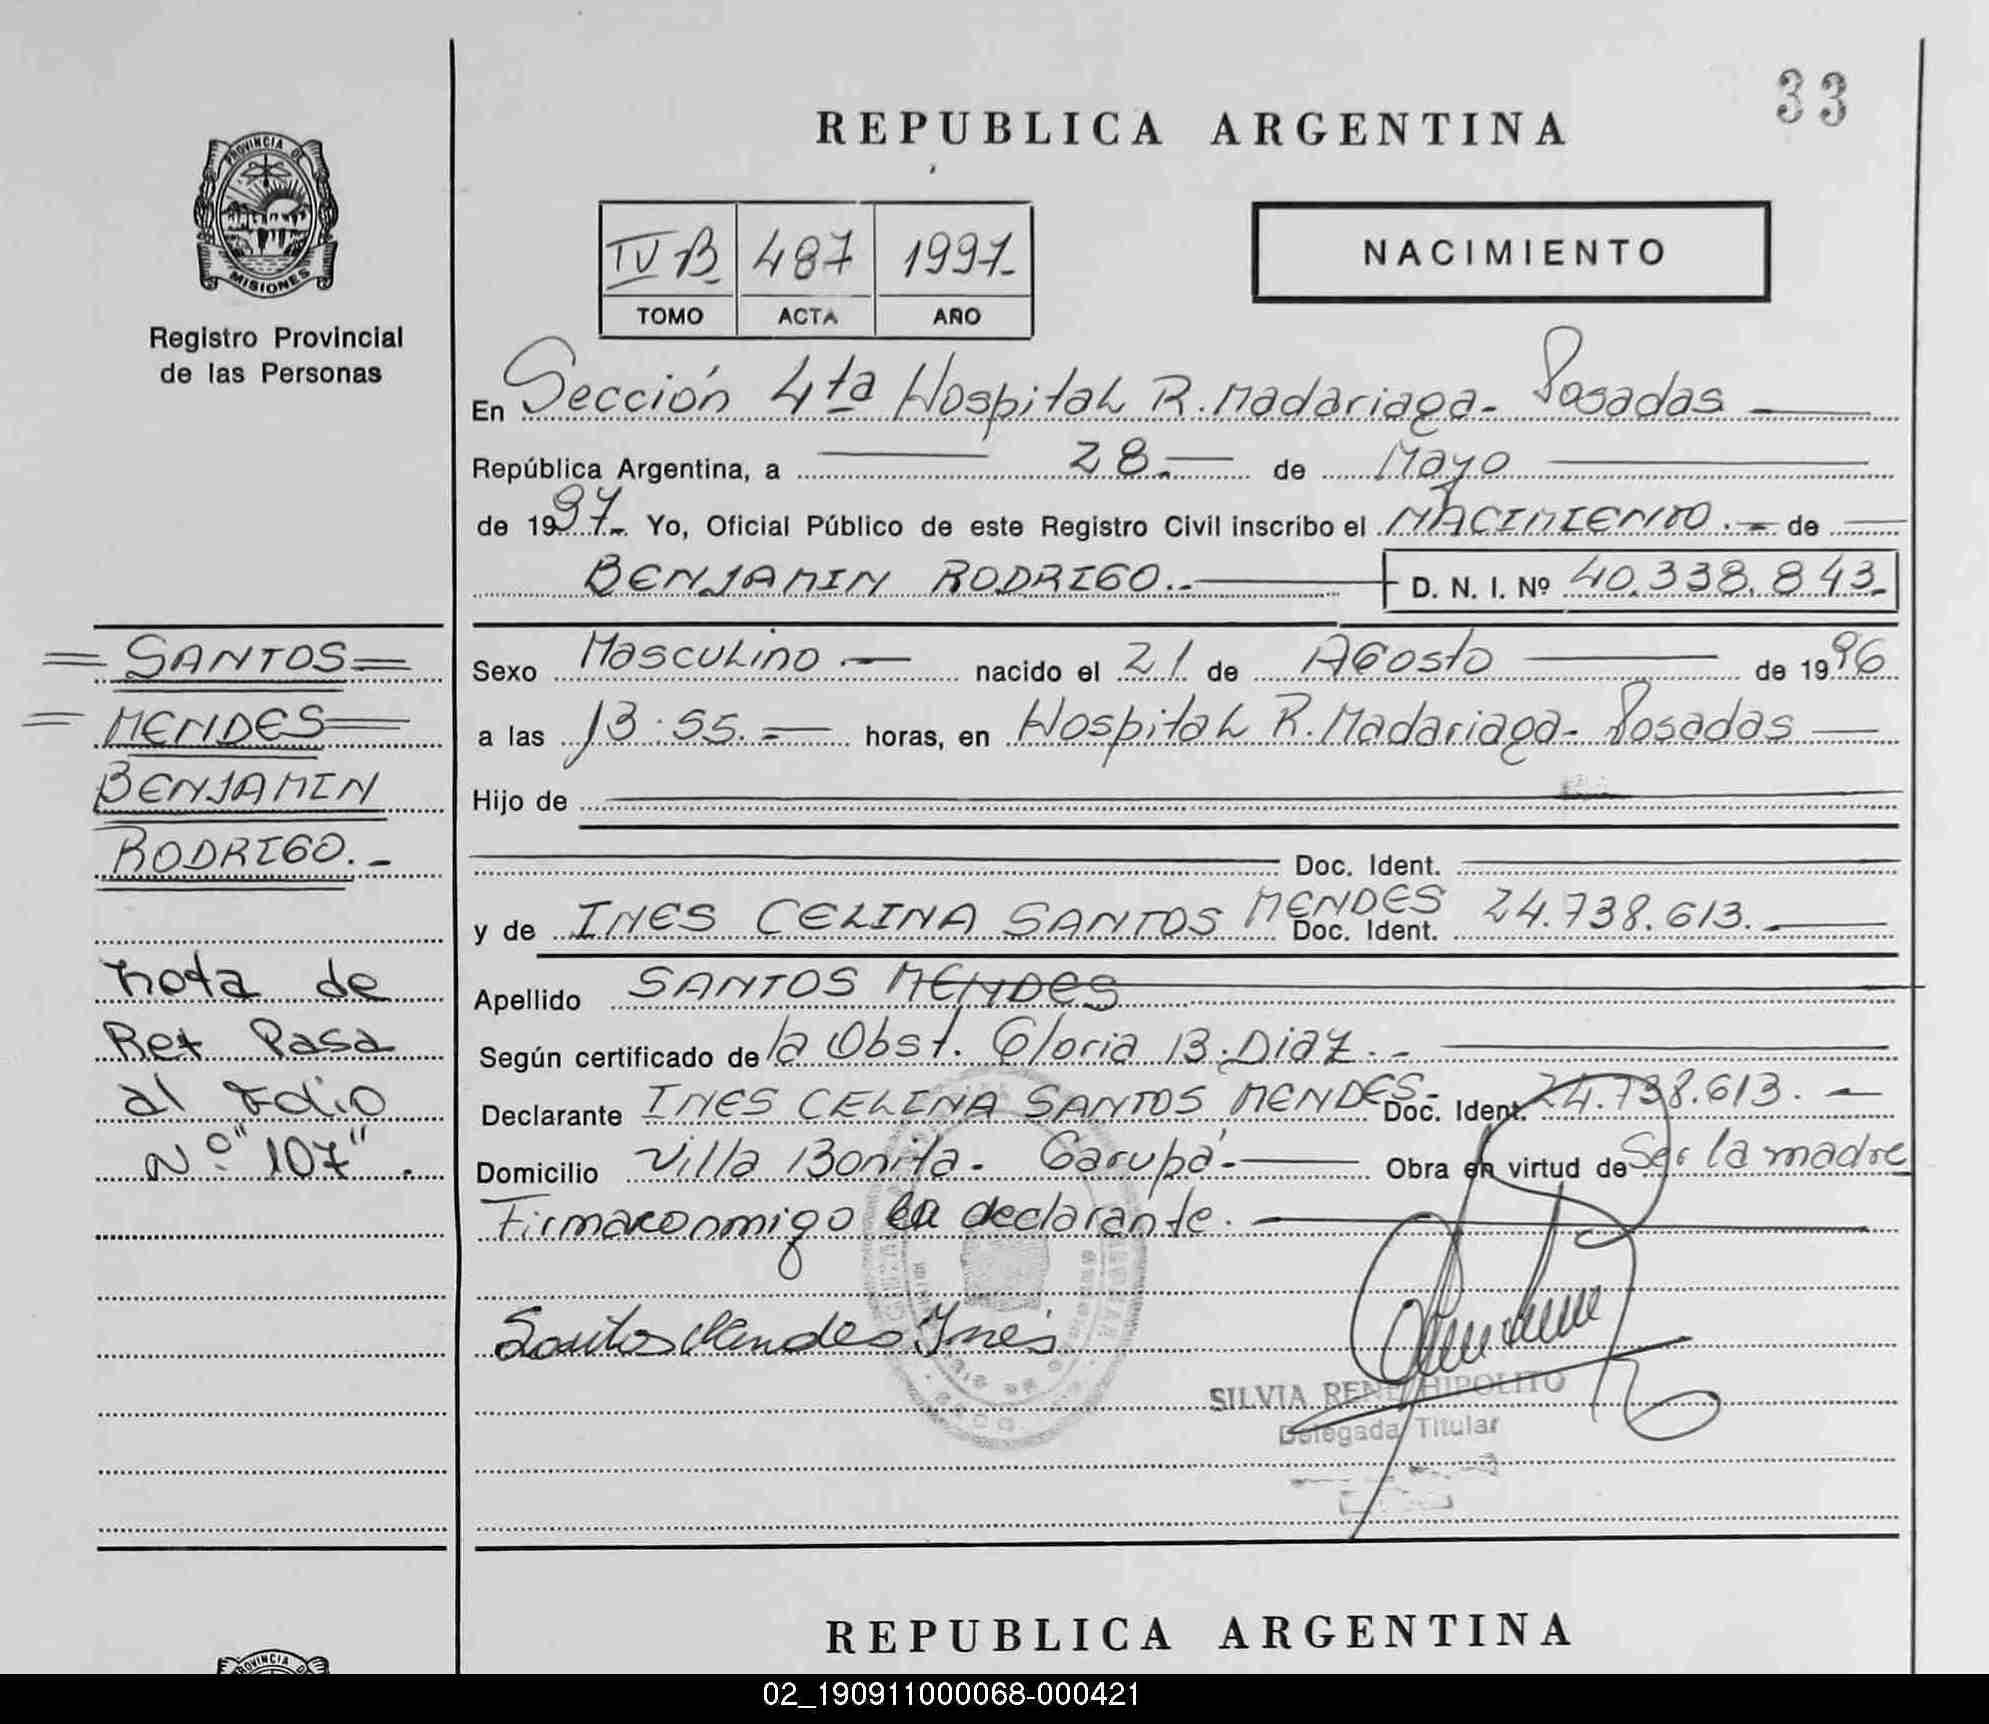 33
REPUBLICA ARGENTINA
PROVINCIA DE
MISIONES
Registro Provincial
de las Personas
IV B 487 1997.-
TOMO ACTA AÑO
NACIMIENTO
En Sección 4ta Hospital R. Madariaga- Posadas
República Argentina, a 28.- de Mayo
de 1997.- Yo, Oficial Público de este Registro Civil inscribo el NACIMIENTO.- de
BENJAMIN RODRIGO.- D. N. I. Nº 40.338.843.-
Sexo Masculino.- nacido el 21 de Agosto de 1996
a las 13:55.- horas, en Hospital R. Madariaga- Posadas
Hijo de
Doc. Ident.
y de INES CELINA SANTOS MENDES Doc. Ident. 24.738.613.
Apellido SANTOS MENDES
Según certificado de la Obst. Gloria B. Diaz.-
Declarante INES CELINA SANTOS MENDES- Doc. Ident. 24.738.613.-
Domicilio Villa Bonita- Garupá- Obra en virtud de Ser la madre
Firma conmigo la declarante.
Santos Mendes Ines
SILVIA RENE HIPOLITO
Delegada Titular
= SANTOS =
= MENDES =
BENJAMIN
RODRIGO.-
nota de
Ret Pasa
al Folio
Nº "107".
REPUBLICA ARGENTINA
PROVINCIA D
02_190911000068-000421